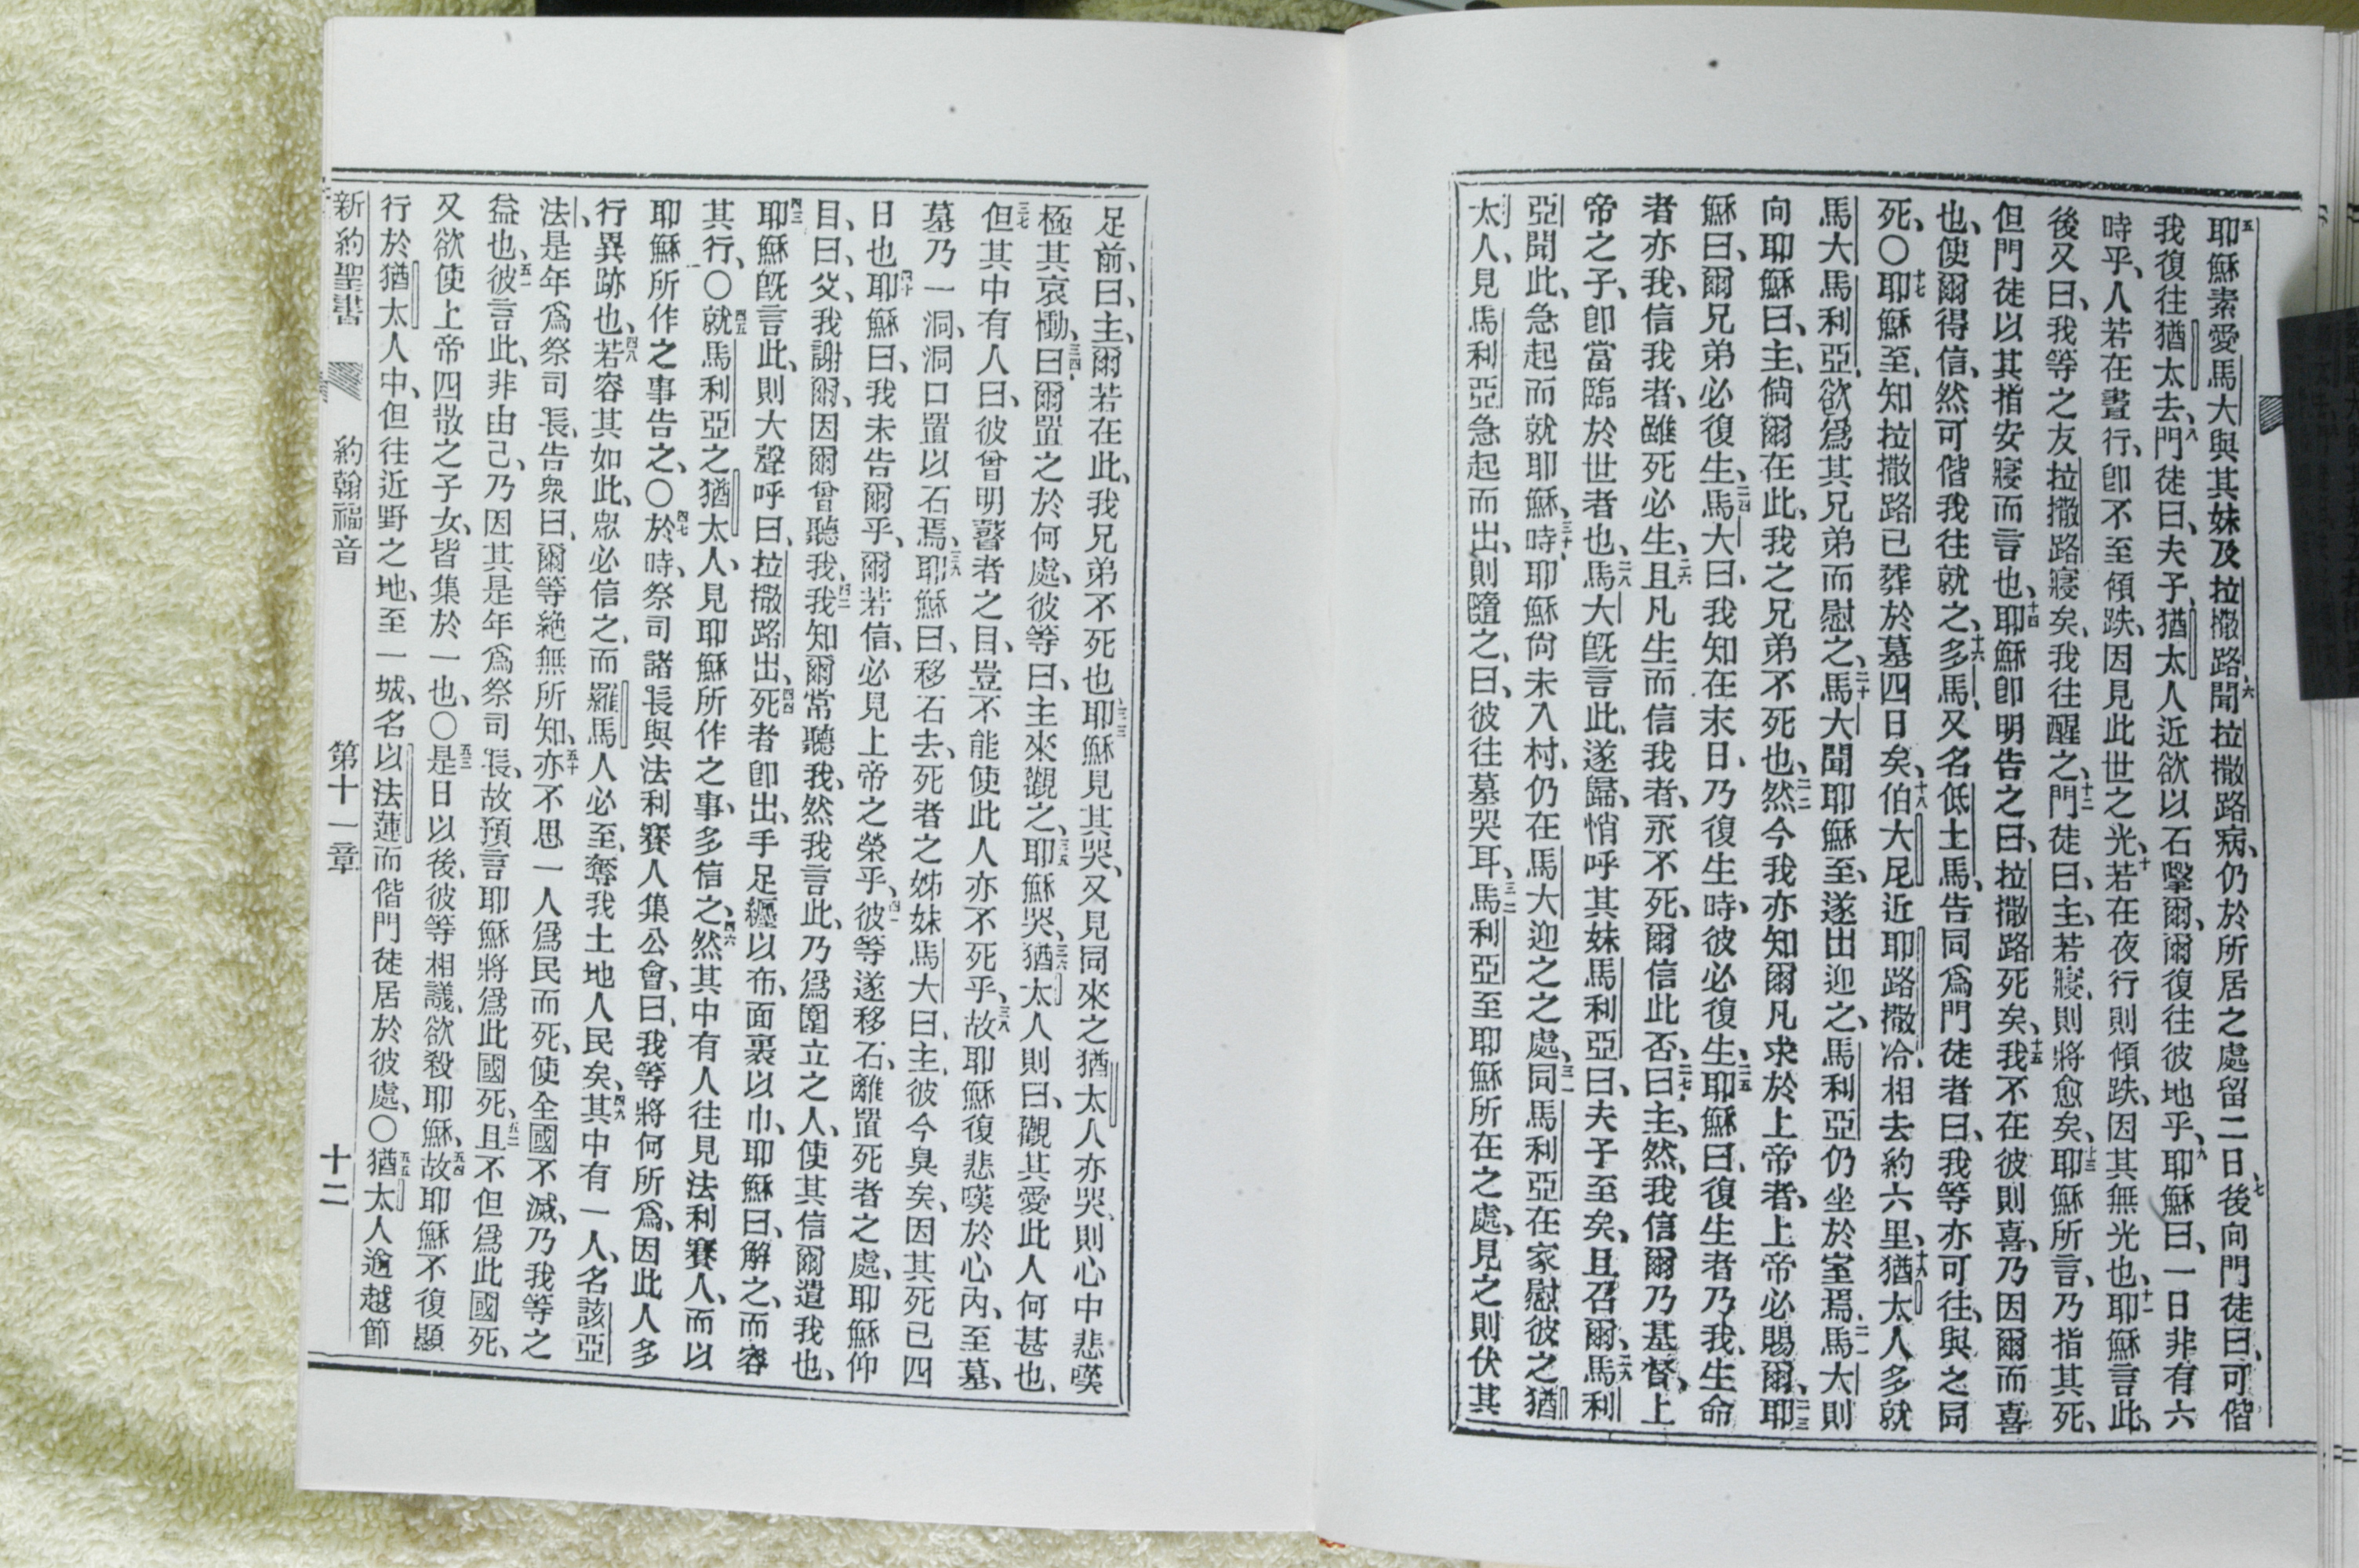 耶穌素愛馬大與其妹及拉撒路六聞拉撒路病、仍於所居之處留二日、七後向門徒曰、可偕
我復往猶太去、八門徒曰、夫子、猶太人近欲以石擊爾、爾復往彼地乎、九耶穌曰、一日非有六
時乎、人若在晝行、卽不至傾跌、因見此世之光、十若在夜行則傾跌、因其無光也、十一耶穌言此、
後又曰、我等之友拉撒路寢矣、我往醒之、十二門徒曰、主、若寢、則將愈矣、十三耶穌所言、乃指其死、
但門徒以其指安寢而言也、十四耶穌卽明告之曰、拉撒路死矣、十五我不在彼則喜、乃因爾而喜
也、使爾得信、然可偕我往就之、十六多馬、又名低土馬、告同爲門徒者曰、我等亦可往、與之同
死、〇十七耶穌至、知拉撒路已葬於墓四日矣、十八伯大尼近耶路撒冷、相去約六里、十九猶太人多就
馬大馬利亞、欲爲其兄弟而慰之、二十馬大聞耶穌至、遂出迎之、馬利亞仍坐於室焉、二一馬大則
向耶穌曰、主、倘爾在此、我之兄弟不死也、二二然今我亦知爾凡求於上帝者、上帝必賜爾、二三耶
穌曰、爾兄弟必復生、二四馬大曰、我知在末日、乃復生時、彼必復生、二五耶穌曰、復生者乃我、生命
者亦我、信我者、雖死必生、二六且凡生而信我者、永不死、爾信此否、二七曰、主、然、我信爾乃基督、上
帝之子、卽當臨於世者也、二八馬大旣言此、遂歸、悄呼其妹馬利亞曰、夫子至矣、且召爾、二九馬利
亞聞此、急起而就耶穌、三十時、耶穌尙未入村、仍在馬大迎之之處、三一同馬利亞在家慰彼之猶
太人、見馬利亞急起而出、則隨之、曰、彼往墓哭耳、三二馬利亞至耶穌所在之處、見之則伏其
足前、曰、主、爾若在此、我兄弟不死也、三三耶穌見其哭、又見同來之猶太人亦哭、則心中悲嘆
極其哀慟、三四曰、爾置之於何處、彼等曰、主來觀之、三五耶穌哭、三六猶太人則曰、觀其愛此人何甚也、
三七但其中有人曰、彼曾明瞽者之目、豈不能使此人亦不死乎、三八故耶穌復悲嘆於心內、至墓、
墓乃一洞、洞口置以石焉、三九耶穌曰、移石去、死者之姊妹馬大曰、主、彼今臭矣、因其死已四
日也、四十耶穌曰、我未告爾乎、爾若信、必見上帝之榮乎、四一彼等遂移石、離置死者之處、耶穌仰
目、曰、父、我謝爾、因爾曾聽我、四二我知爾常聽我、然我言此、乃爲圍立之人、使其信爾遣我也、
四三耶穌旣言此、則大聲呼曰、拉撒路出、四四死者卽出、手足纏以布、面裹以巾、耶穌曰、解之、而容
其行、〇四五就馬利亞之猶太人、見耶穌所作之事、多信之、四六然其中有人往見法利賽人、而以
耶穌所作之事告之、〇四七於時、祭司諸長與法利賽人集公會、曰、我等將何所爲、因此人多
行異跡也、四八若容其如此、眾必信之、而羅馬人必至、奪我土地人民矣、四九其中有一人、名該亞
法、是年爲祭司長、告衆曰、爾等絕無所知、五十亦不思一人爲民而死、使全國不滅、乃我等之
益也、五一彼言此、非由己、乃因其是年爲祭司長、故預言耶穌將爲此國死、五二且不但爲此國死、
又欲使上帝四散之子女、皆集於一也、〇五三是日以後、彼等相議、欲殺耶穌、五四故耶穌不復顯
行於猶太人中、但往近野之地、至一城、名以法蓮、而偕門徒居於彼處、〇五五猶太人逾越節
新約聖書 約翰福音 第十一章 十二